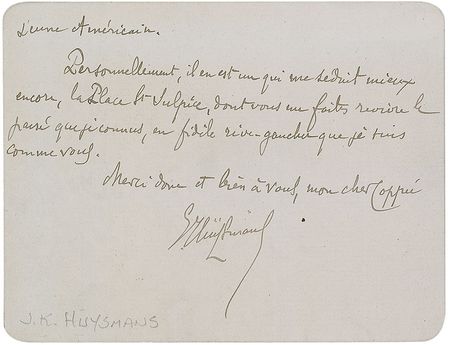 jeune Américain.
Personnellement, il en est un qui me séduit mieux
encore, la Place St Sulpice, dont vous me faites revivre le
passé que j'ai connu, en fidèle rive-gaucher que je suis
comme vous.
Merci donc et bien à vous, mon cher Coppée
G Huÿsmans
J.K. HUYSMANS